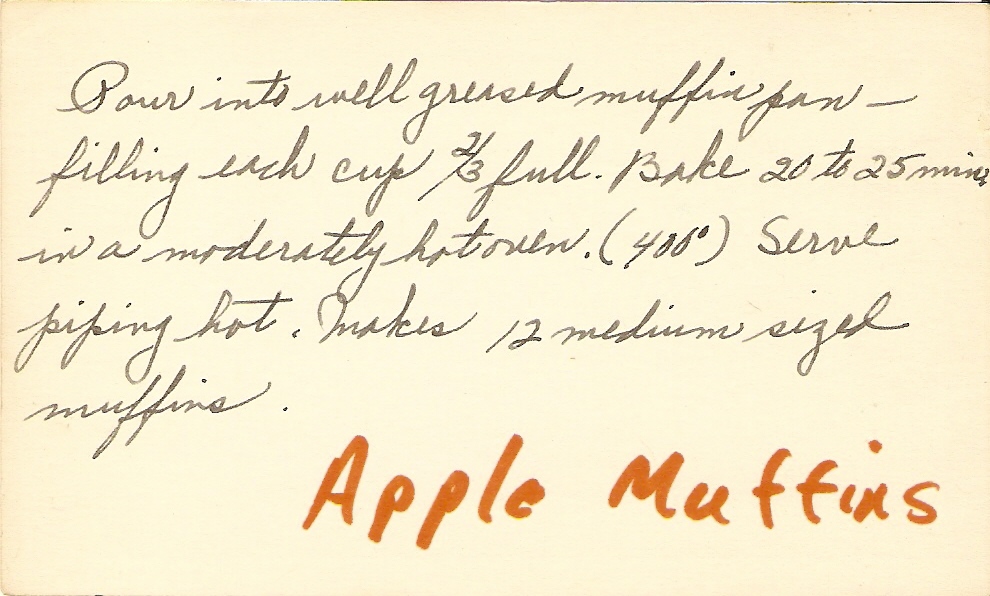 Pour into well greased muffin pan —
filling each cup 2/3 full. Bake 20 to 25 mins
in a moderately hot oven. (400°) Serve
piping hot. Makes 12 medium sized
muffins.
Apple Muffins